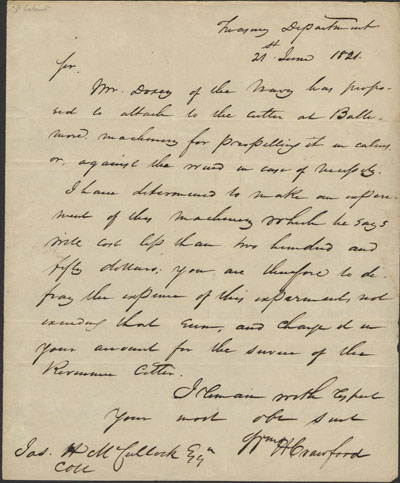 Treasury Department
21st June 1821.
Sir.
Mr. Doxey of the Navy has propo-
sed to attach to the Cutter at Balti-
more. machinery for propelling it in calms
or, against the wind in case of necessity.
I have determined to make an experi-
ment of this machinery which he says
will cost less than two hundred and
fifty dollars; you are therefore to de-
fray the expense of this experiment, not
exceeding that sum, and charge it in
your account for the service of the
Revenue Cutter.
I remain with respect
Your most obe. Sert
Crawford
Jas. H McCullock Esqr
Coll